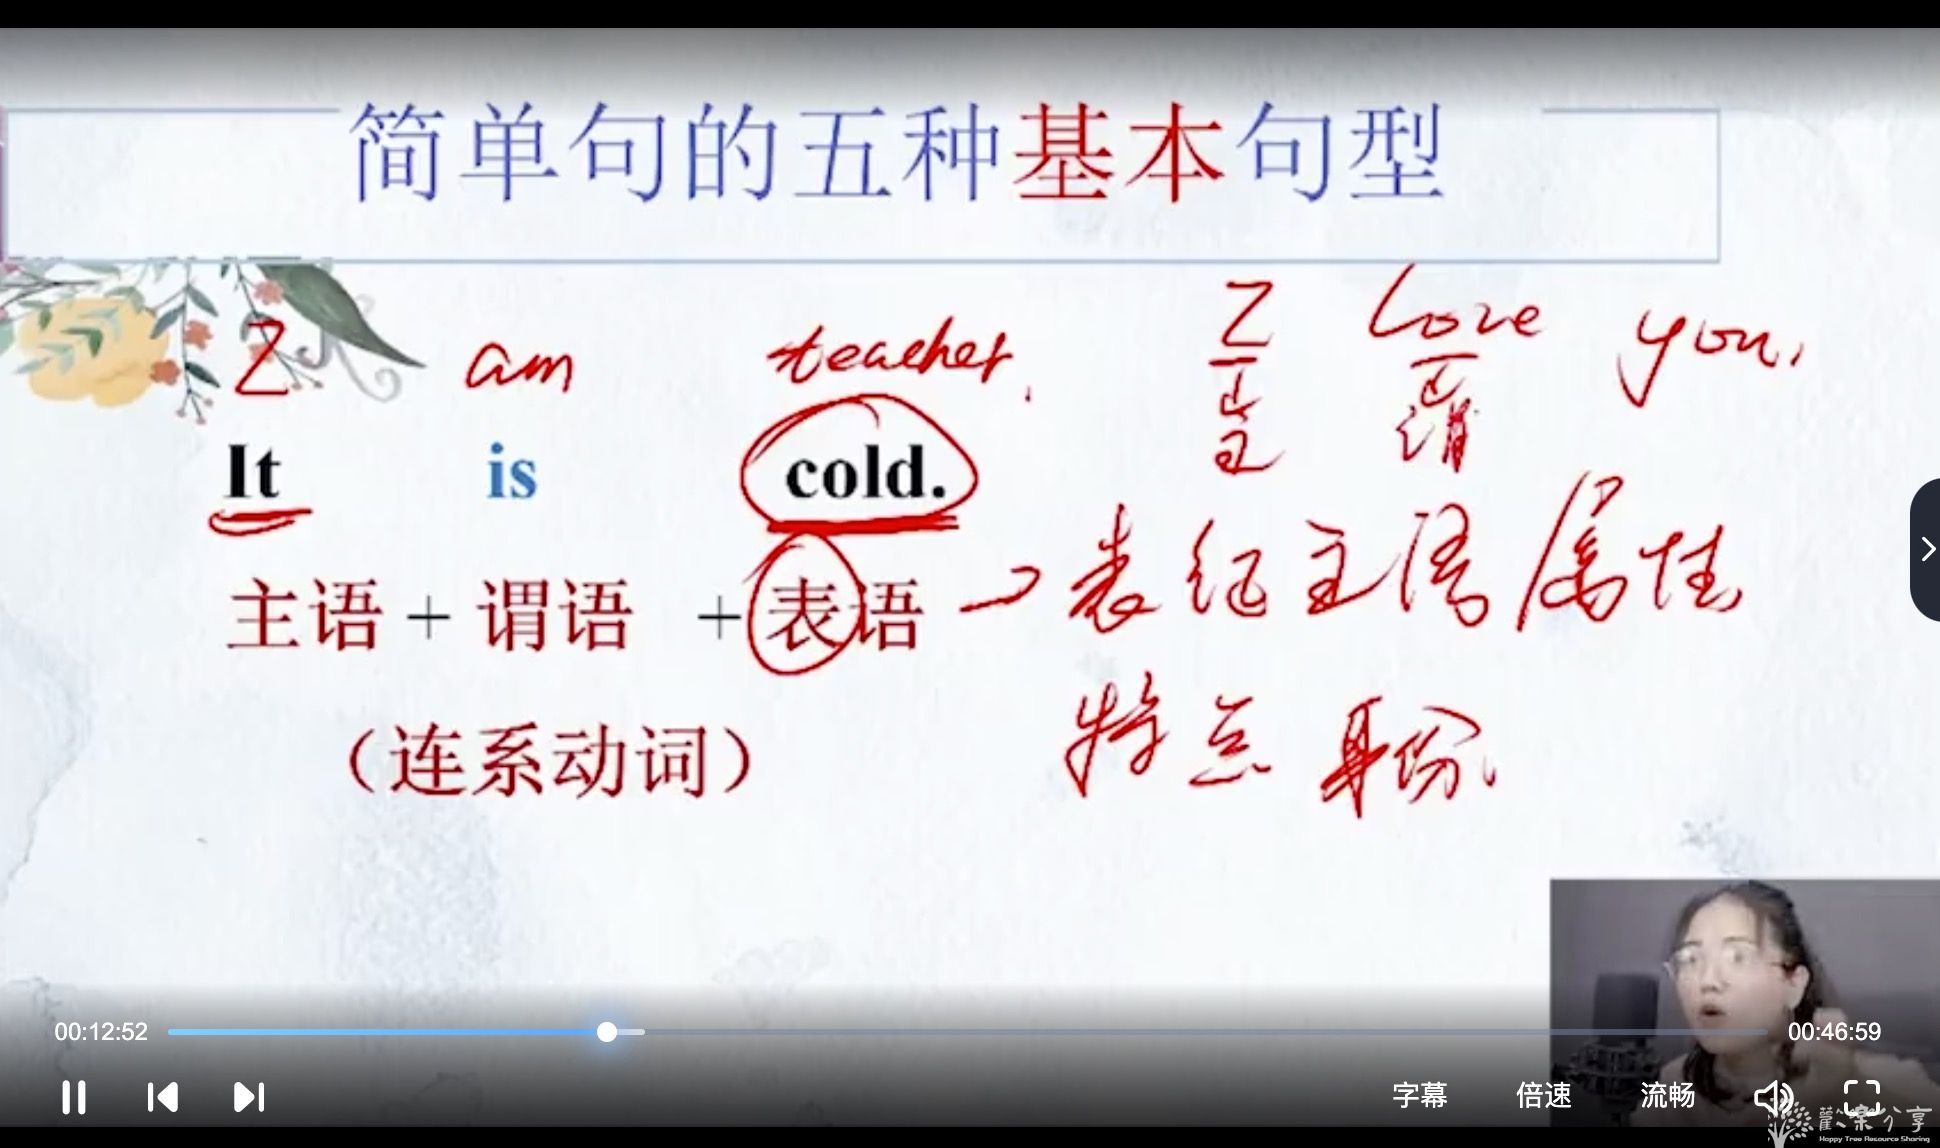 简单句的五种基本句型
I am teacher.
I love you.
It is cold.
主 谓
主语 + 谓语 + 表语 → 表征主语属性
特点 身份、
（连系动词）
00:12:52
00:46:59
字幕 倍速 流畅
歡樂分享
Happy Tree Resource Sharing